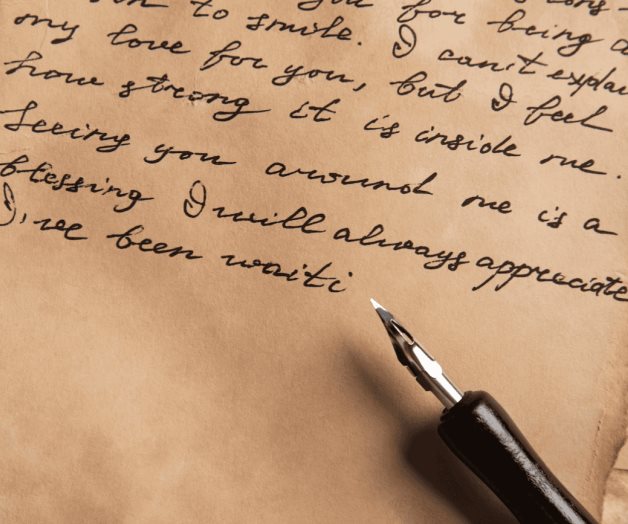 to smile. you for being a
my love for you, but I can't explai
how strong it is inside me. I feel
Seeing you around me is a
blessing I will always appreciate
I've been waiti